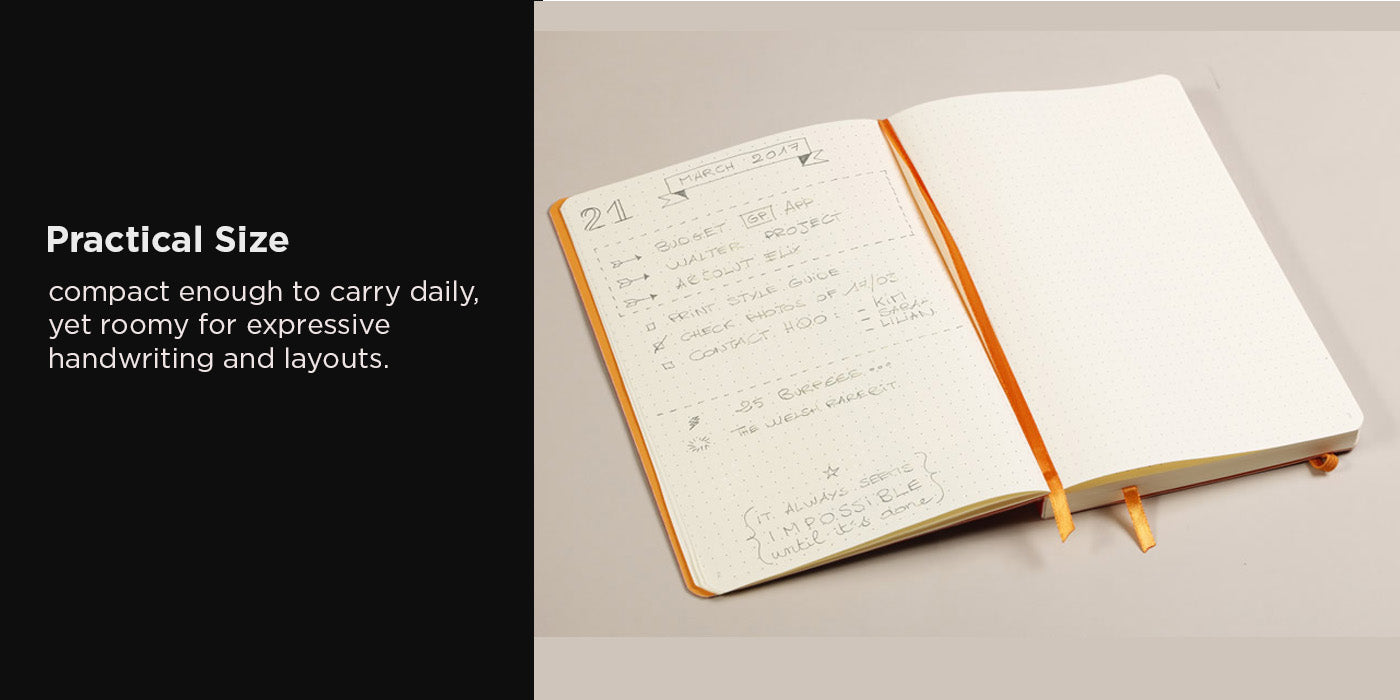 Practical Size
compact enough to carry daily,
yet roomy for expressive
handwriting and layouts.
MARCH 2017
21
BUDGET GP App
WALTER PROJECT
ABSOLUT ELIX
PRINT STYLE GUIDE
CHECK PHOTOS OF 17/03
CONTACT HQO: - KIM
- SARAH
- LILIAN.
25 BURPEES...
THE WELSH RAREBIT.
IT ALWAYS SEEMS
IMPOSSIBLE
until it's done